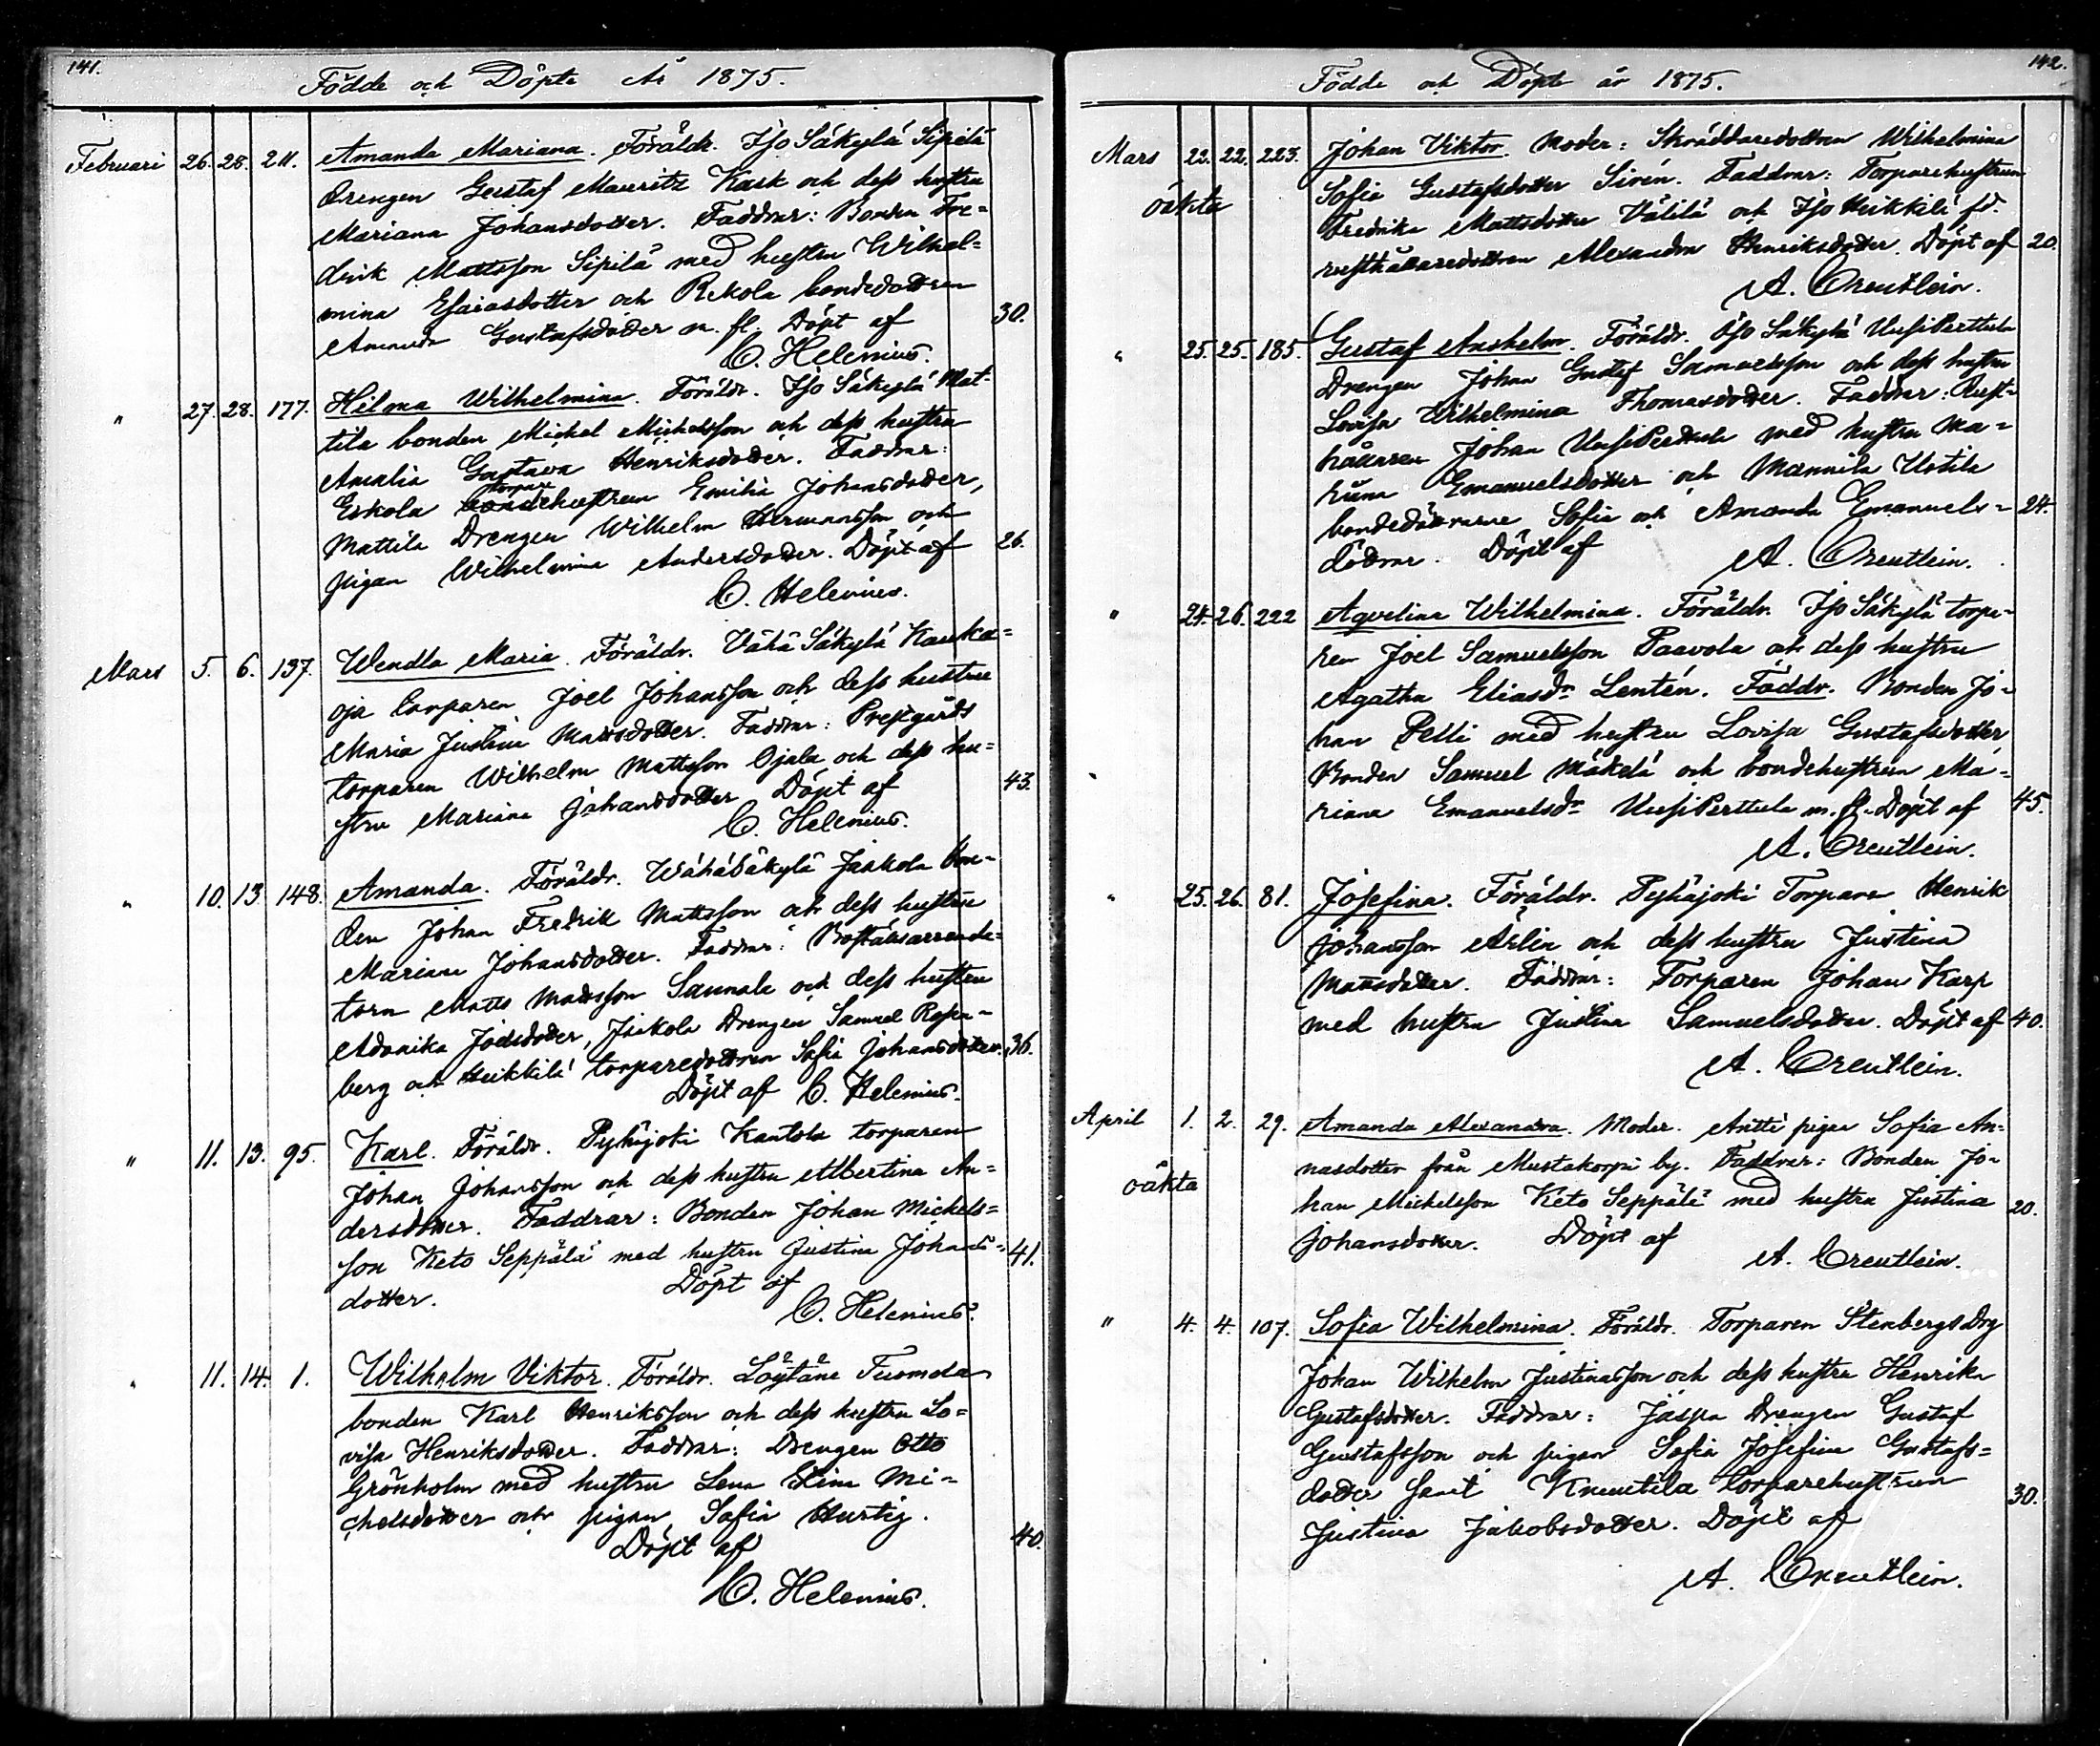 141.
Födde och Döpte År 1875.
Februari 26. 28. 211. Amanda Mariana. Föräldr. Iso Säkylä Sipilä
Drengen Gustaf Mauritz Kask och dess hustru
Mariana Johansdotter. Faddrar: Bonden Fre=
drik Mattsson Sipilä med hustru Wilhel=
mina Esaiasdotter och Rekola bondedottren
Amanda Gustafsdotter m. fl. Döpt af 30.
C. Helenius.
" 27. 28. 177. Hilma Wilhelmina. Föräldr. Iso Säkylä Mat-
tila bonden Mickel Mickelsson och dess hustru
Amalia Gustava Henriksdotter. Faddrar:
torpare
Eskola bondehustrun Emilia Johansdotter,
Mattila Drengen Wilhelm Hermansson och
pigan Wilhelmina Andersdotter. Döpt af 26.
C. Helenius.
Mars 5. 6. 137. Wendla Maria. Föräldr. Vähä Säkylä Kauka=
oja torparen Joel Johansson och dess hustru
Maria Justina Mattsdotter. Faddrar: Prestgårds
torparen Wilhelm Mattsson Ojala och dess hu=
stru Mariana Johansdotter Döpt af 43.
C. Helenius.
" 10. 13. 148. Amanda. Föräldr. Wähä Säkylä Jaakola bon-
den Johan Fredrik Mattsson och dess hustru
Mariana Johansdotter. Faddrar: Boställsarrenda=
torn Matts Mattsson Saunala och dess hustru
Adamika Joelsdotter, Jaakola Drengen Samuel Rosen-
berg och Heikkilä torparedottren Sofia Johansdotter. 36.
Döpt af C. Helenius.
" 11. 13. 95. Karl. Föräldr. Pyhäjoki Kantola torparen
Johan Johansson och dess hustru Albertina An=
dersdotter. Faddrar: Bonden Johan Mickels=
son Keto Seppälä med hustru Justina Johans= 41.
dotter. Döpt af
C. Helenius.
" 11. 14. 1. Wilhelm Viktor. Föräldr. Löytäne Tuomola
bonden Karl Henriksson och dess hustru Lo=
visa Henriksdotter. Faddrar: Drengen Otto
Grönholm med hustru Lena Stina Mi=
chelsdotter och pigan Sofia Hurtig. 40.
Döpt af
C. Helenius.
142.
Födde och Döpte år 1875.
Mars 22. 22. 223. Johan Viktor. Moder: Skräddaredottren Wilhelmina
oäkta Sofia Gustafsdotter Sirén. Faddrar: Torparehustrun
Fredrika Mattsdotter Välilä och Iso Heikkilä fd.
rusthållaredottren Alexandra Henriksdotter. Döpt af 20.
A. Creutlein.
" 25. 25. 185. Gustaf Anshelm. Föräldr. Iso Säkylä Uusi Perttula
Drengen Johan Gustaf Samuelsson och dess hustru
Lovisa Wilhelmina Thomasdotter. Faddrar: Rust=
hållaren Johan Uusi Perttula med hustru Ma=
riana Emanuelsdotter och Mannila Uotila
bondedöttrarne Sofia och Amanda Emanuels= 24.
döttrar. Döpt af A. Creutlein.
" 24. 26. 222 Aqvelina Wilhelmina. Föräldr. Iso Säkylä torpa-
ren Joel Samuelsson Paavola och dess hustru
Agatha Eliasdr Lentén. Faddr. Bonden Jo-
han Pelli med hustru Lovisa Gustafsdotter,
Bonden Samuel Mäkelä och bondehustrun Ma=
riana Emanuelsdr Uusi Perttula m. fl. Döpt af 45.
A. Creutlein.
" 25. 26. 81. Josefina. Föräldr. Pyhäjoki Torparen Henrik
Johansson Arlin och dess hustru Justina
Mattsdotter. Faddrar: Torparen Johan Karp
med hustru Justina Samuelsdotter. Döpt af 40.
A. Creutlein.
April 1. 2. 29. Amanda Alexandra. Moder. Antti pigan Sofia An=
oäkta nasdotter från Mustakorpi by. Faddrar: Bonden Jo-
han Mickelsson Keto Seppälä med hustru Justina 20.
Johansdotter. Döpt af
A. Creutlein.
" 4. 4. 107. Sofia Wilhelmina. Föräldr. Torparen Stenbergs Drg
Johan Wilhelm Justinasson och dess hustru Henrika
Gustafsdotter. Faddrar: Jaspa Drengen Gustaf
Gustafsson och pigan Sofia Josefina Gustafs=
dotter samt Knuutila torparehustrun 30.
Justina Jakobsdotter. Döpt af
A. Creutlein.